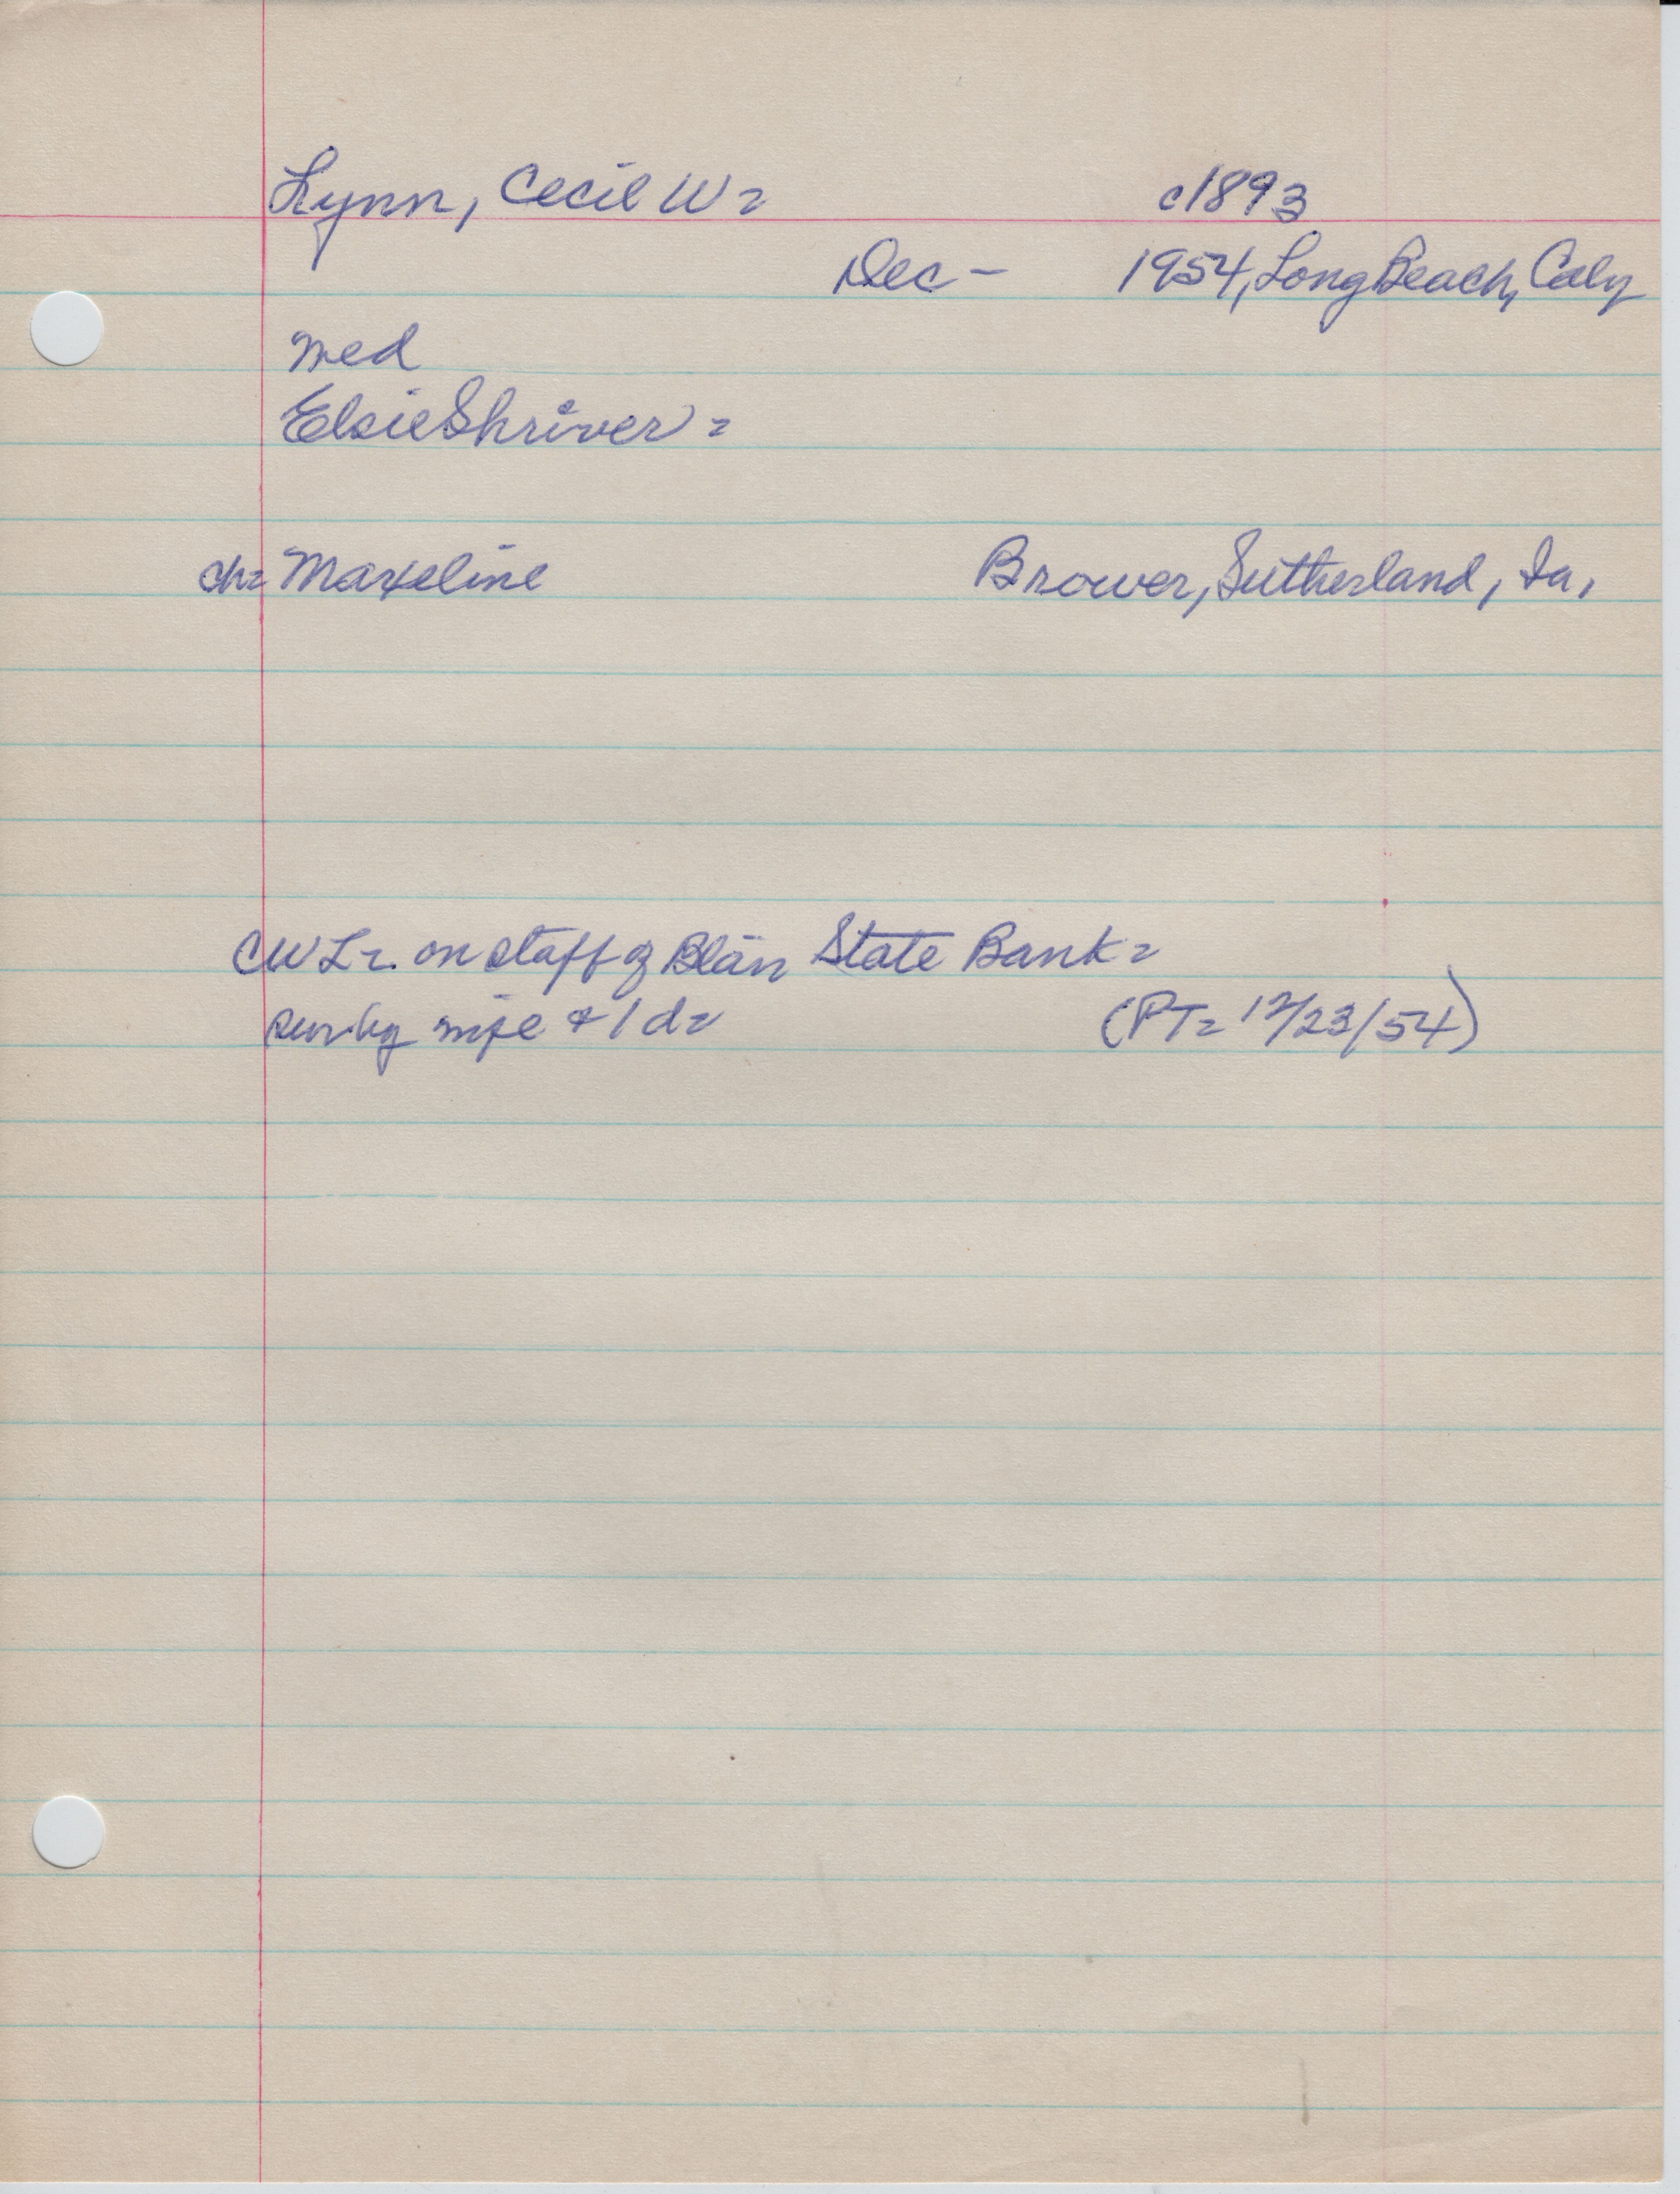 Lynn, Cecil W= c1893
Dec - 1954, Long Beach, Calif
med
Elsie Shriver=
ch= Maxeline Brower, Sutherland, Ia.
CWL=. on staff of Blair State Bank=
sur by wife & 1 d= (PT= 12/23/54)